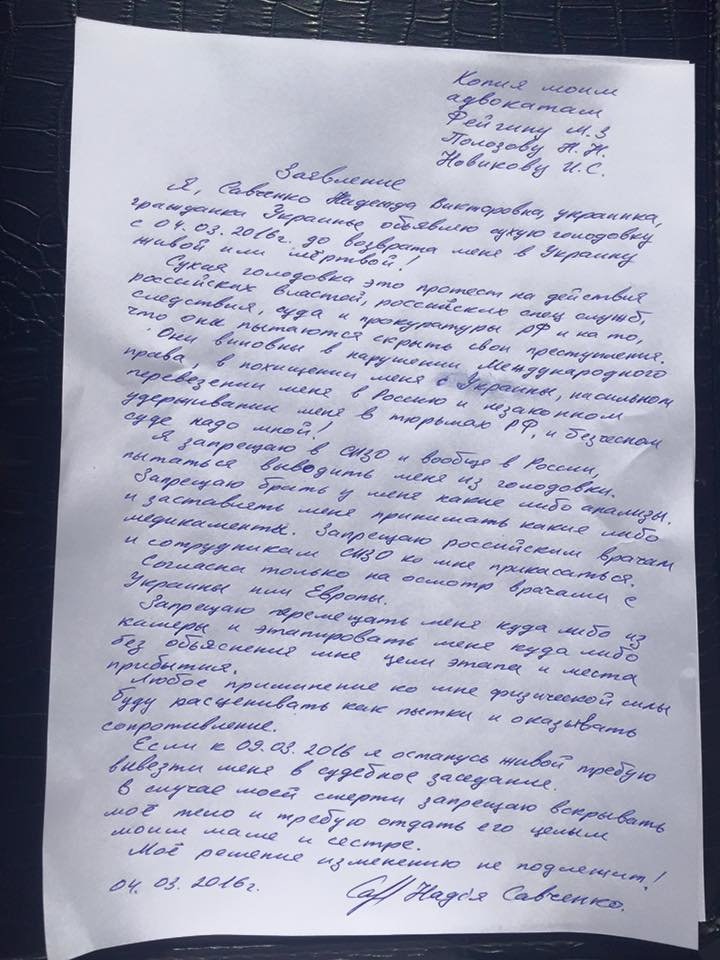 Копия моим
адвокатам
Фейгину М.З
Полозову Н.Н.
Новикову И.С.
Заявление
Я, Савченко Надежда Викторовна, украинка,
гражданка Украины объявляю сухую голодовку
с 04.03.2016г. до возврата меня в Украину
живой или мёртвой!
Сухая голодовка это протест на действия
российских властей, российских спец служб,
следствия, суда и прокуратуры РФ и на то,
что они пытаются скрыть свои преступления.
Они виновны в нарушении Международного
права, в похищении меня с Украины, насильном
перевезении меня в Россию и незаконном
удерживании меня в тюрьмах РФ, и безчесном
суде надо мной!
Я запрещаю в СИЗО и вообще в России,
пытаться выводить меня из голодовки.
Запрещаю брать у меня какие либо анализы.
и заставлять меня принимать какие либо
медикаменты. Запрещаю российским врачам
и сотрудникам СИЗО ко мне прикасаться.
Согласна только на осмотр врачами с
Украины или Европы.
Запрещаю перемещать меня куда либо из
камеры и этапировать меня куда либо
без объяснения мне цели этапа и места
прибытия.
Любое приминение ко мне физической силы
буду расценивать как пытки и оказывать
сопротивление.
Если к 09.03.2016 я останусь живой требую
вывезти меня в судебное заседание.
В случае моей смерти запрещаю вскрывать
моё тело и требую отдать его целым
моим маме и сестре.
Моё решение изменению не подлежит!
04.03.2016г. Надія Савченко.